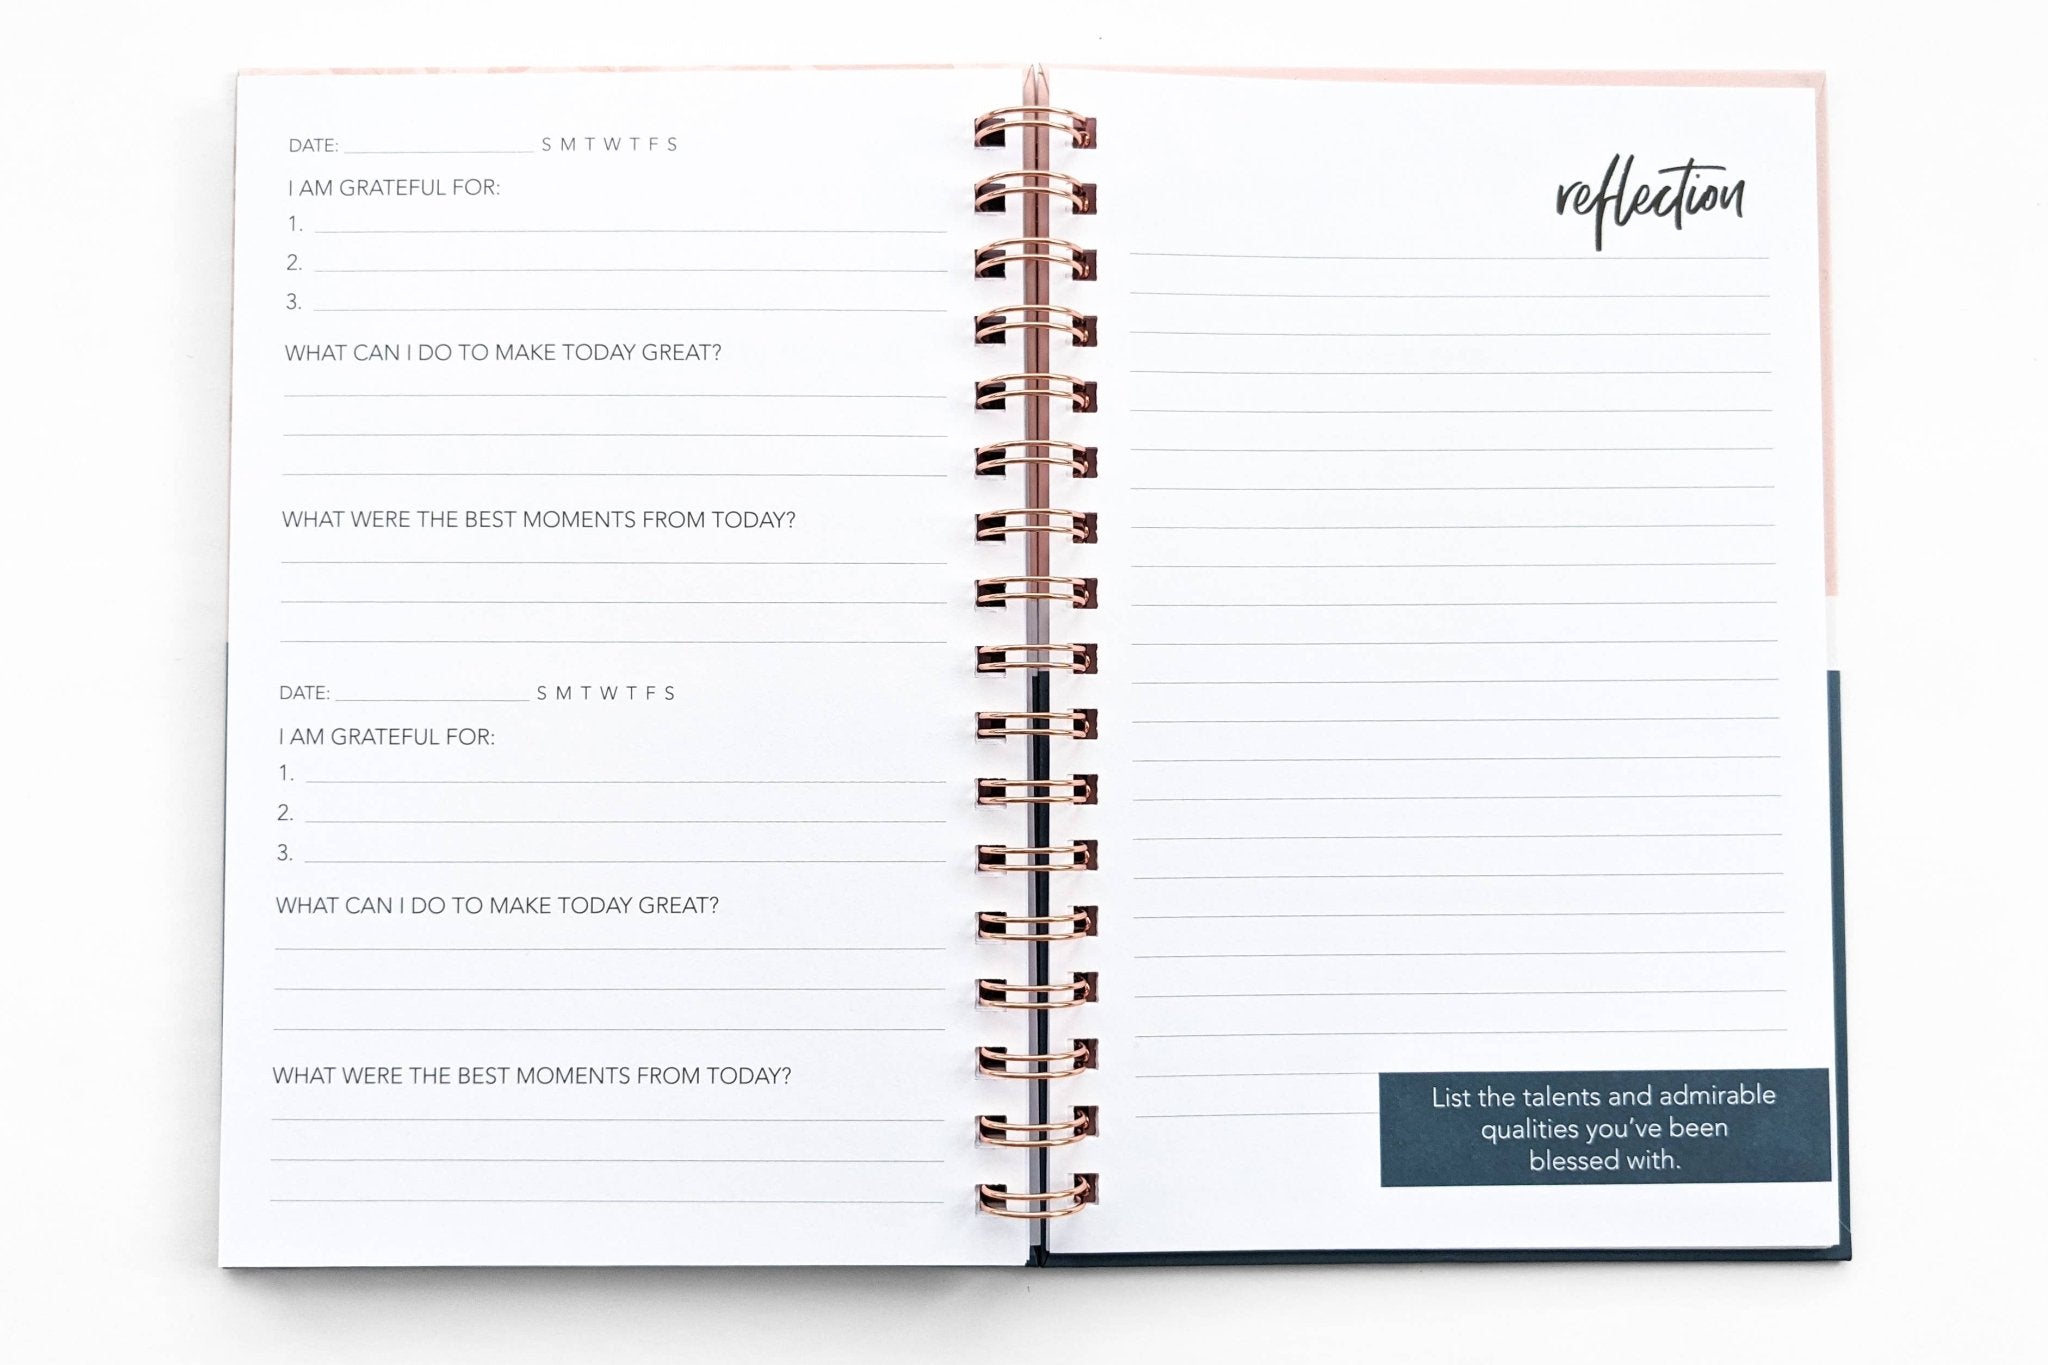 DATE: S M T W T F S
I AM GRATEFUL FOR:
1.
2.
3.
WHAT CAN I DO TO MAKE TODAY GREAT?
WHAT WERE THE BEST MOMENTS FROM TODAY?
DATE: S M T W T F S
I AM GRATEFUL FOR:
1.
2.
3.
WHAT CAN I DO TO MAKE TODAY GREAT?
WHAT WERE THE BEST MOMENTS FROM TODAY?
reflection
List the talents and admirable
qualities you've been
blessed with.